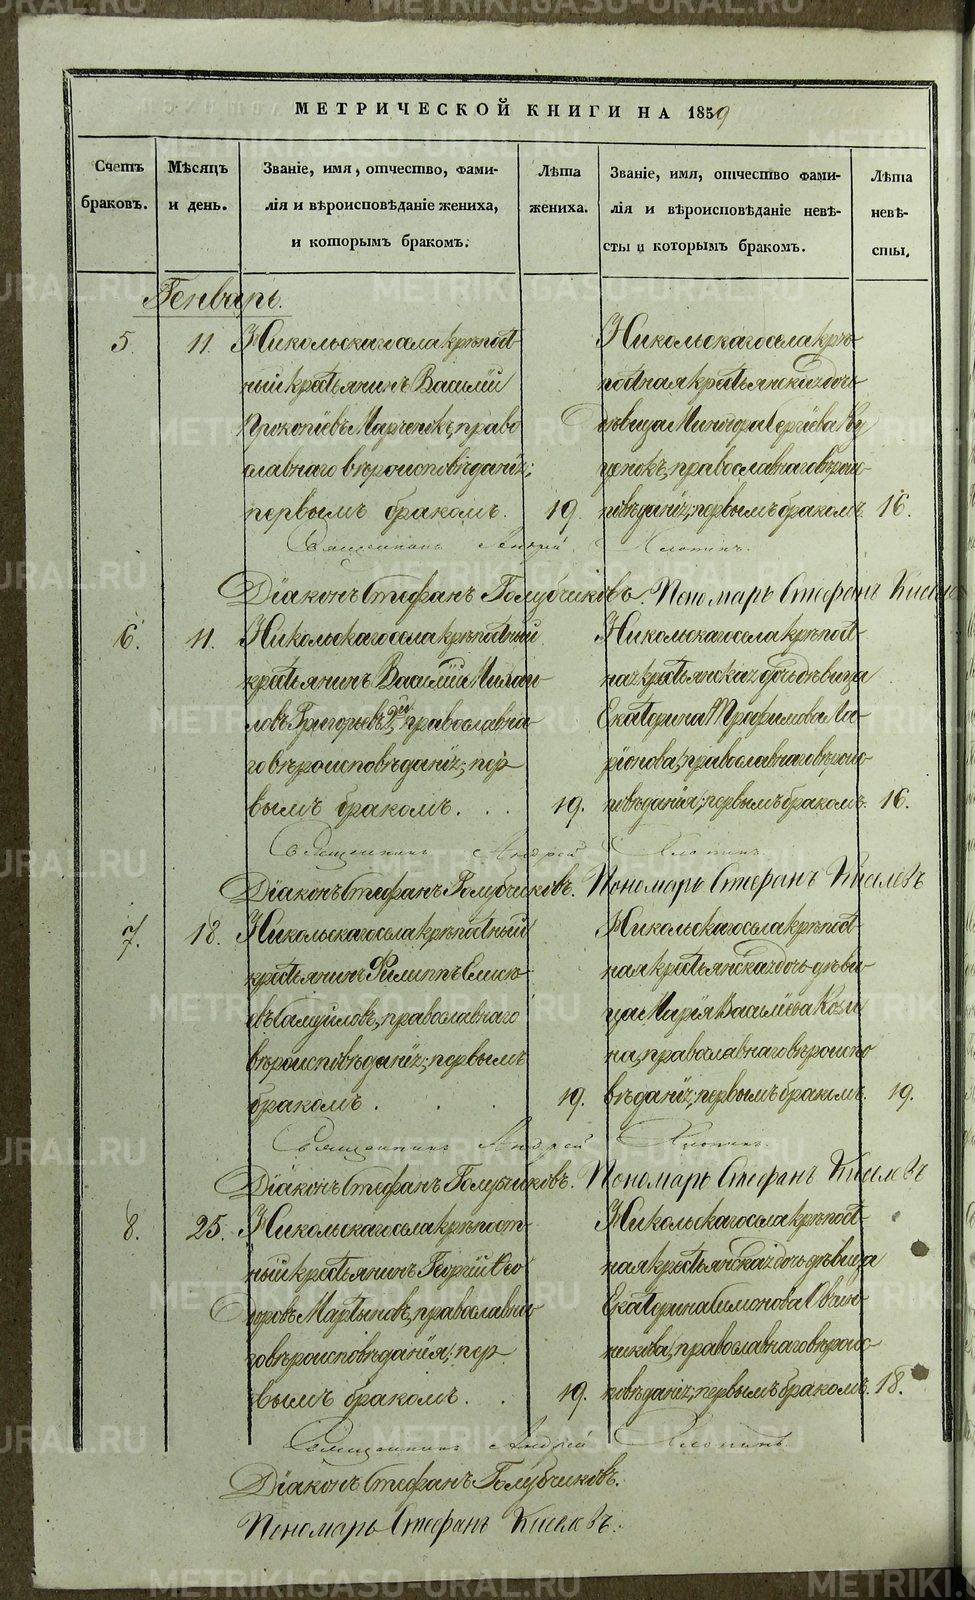 МЕТРИЧЕСКОЙ КНИГИ НА 1859
Счетъ браковъ.
Мѣсяцъ и день.
Званіе, имя, отчество, фами-
лія и вѣроисповѣданіе жениха,
и которымъ бракомъ.
Лѣта
жениха.
Званіе, имя, отчество фами-
лія и вѣроисповѣданіе невѣ-
сты и которымъ бракомъ.
Лѣта
невѣ-
сты.
Генварь.
5. 11. Никольскаго села крѣпост-
ный крестьянинъ Василій
Прокопіевъ православнаго вѣроисповѣданія;
первымъ бракомъ. 19.
Никольскаго села крѣ-
постная крестьянская дочь
дѣвица Сергіева
православнаго вѣроис-
повѣданія; первымъ бракомъ. 16.
Священникъ Андрей
Діаконъ Стефанъ Голубчиковъ. Пономарь Стефанъ Киселевъ
6. 11. Никольскаго села крѣпостный
крестьянинъ Василій Михаи-
ловъ Григорьевъ 2й, православна-
го вѣроисповѣданія; пер-
вымъ бракомъ. . . 19.
Никольскаго села крѣпост-
ная крестьянская дочь дѣвица
Екатерина Трофимова Ла-
ріонова, православнаго вѣроис-
повѣданія; первымъ бракомъ. 16.
Священникъ Андрей
Діаконъ Стефанъ Голубчиковъ. Пономарь Стефанъ Киселевъ
7. 18. Никольскаго села крѣпостный
крестьянинъ Филиппъ
Самуиловъ, православнаго
вѣроисповѣданія; первымъ
бракомъ . . . 19.
Никольскаго села крѣпост-
ная крестьянская дочь дѣви-
ца Марія Васильева Кози-
на, православнаго вѣроиспо-
вѣданія; первымъ бракомъ. 19.
Священникъ Андрей
Діаконъ Стефанъ Голубчиковъ. Пономарь Стефанъ Киселевъ
8. 25. Никольскаго села крѣпост-
ный крестьянинъ Георгій Ѳео-
доровъ Мартыновъ, православна-
го вѣроисповѣданія; пер-
вымъ бракомъ. . 19.
Никольскаго села крѣпост-
ная крестьянская дочь дѣвица
Екатерина Симонова Овчин-
никова, православнаго вѣроис-
повѣданія; первымъ бракомъ. 18.
Священникъ Андрей
Діаконъ Стефанъ Голубчиковъ.
Пономарь Стефанъ Киселевъ.
METRIKI.GASO-URAL.RU